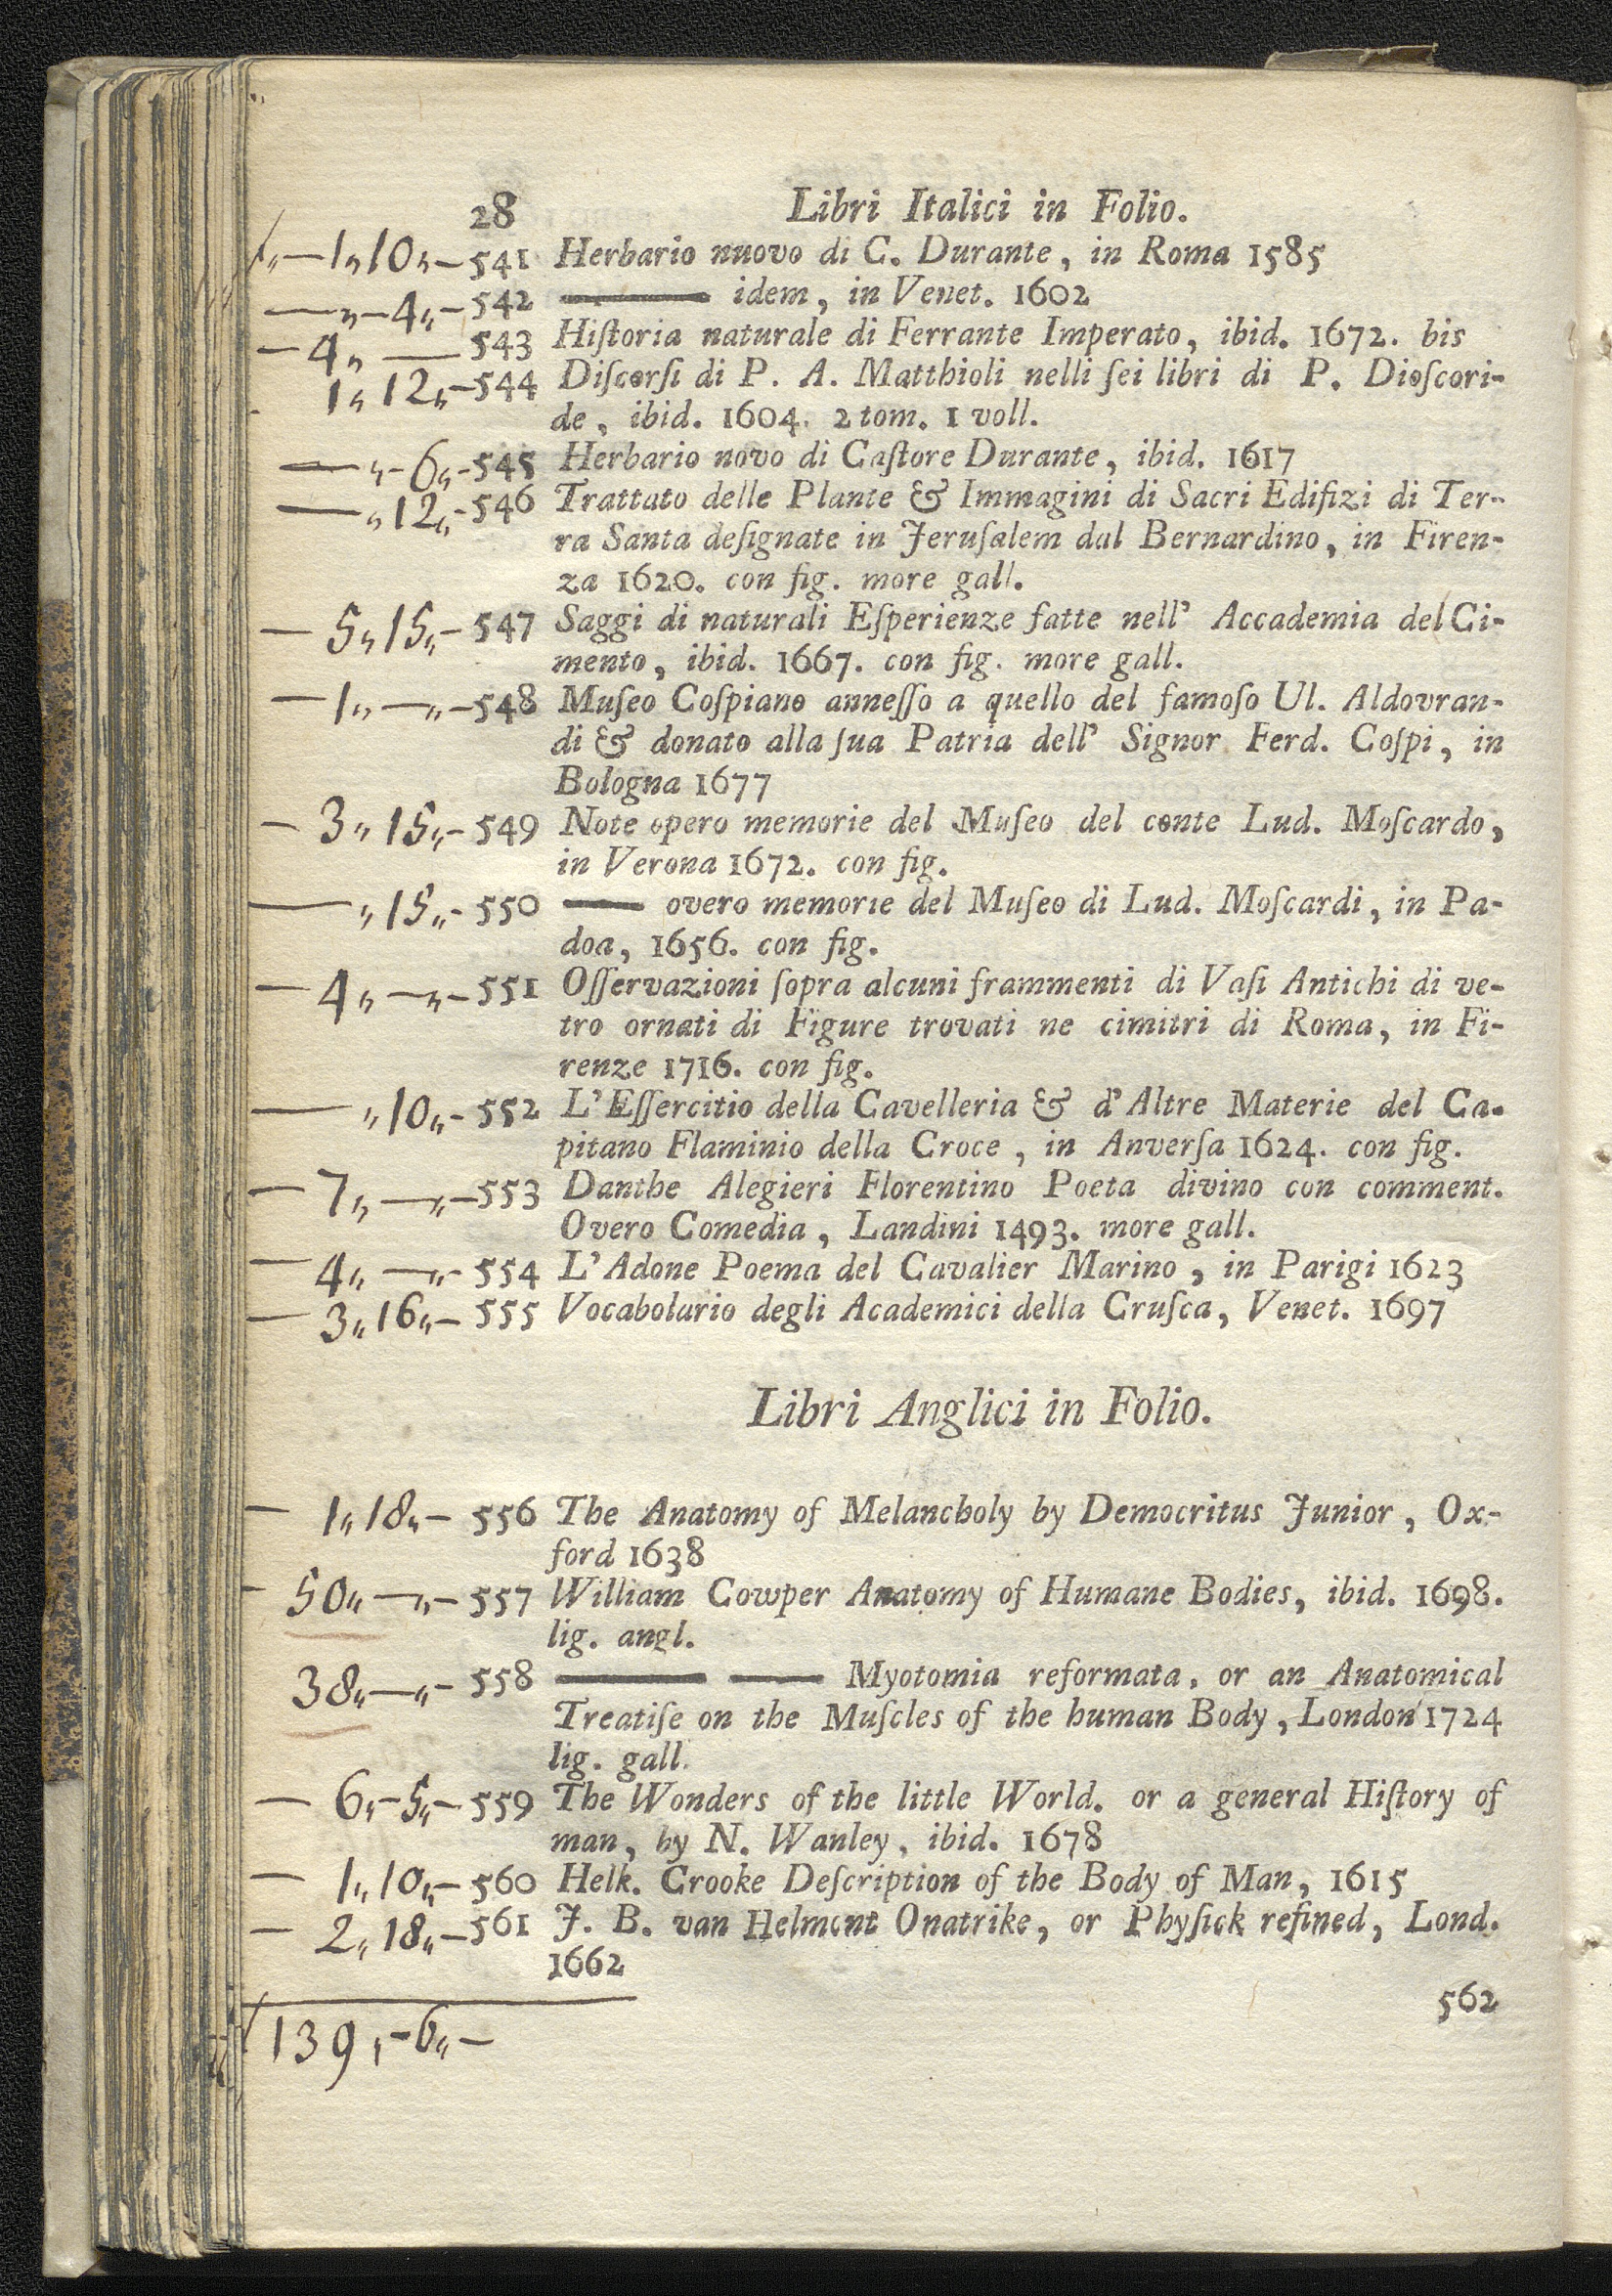 28 Libri Italici in Folio.
ƒ„—1„10„—541 Herbario nuovo di C. Durante, in Roma 1585
—„—4„—542 ——— idem, in Venet. 1602
—4„ —543 Hiſtoria naturale di Ferrante Imperato, ibid. 1672. bis
1„12„—544 Diſcorſi di P. A. Matthioli nelli ſei libri di P. Dioſcori-
de, ibid. 1604. 2 tom. 1 voll.
—„-6„-545 Herbario novo di Caſtore Durante, ibid. 1617
—„12„-546 Trattato delle Plante & Immagini di Sacri Edifizi di Ter-
ra Santa deſignate in Jeruſalem dal Bernardino, in Firen-
za 1620. con fig. more gall.
—5„15„—547 Saggi di naturali Eſperienze fatte nell' Accademia del Ci-
mento, ibid. 1667. con fig. more gall.
—1„—„—548 Muſeo Coſpiano anneſſo a quello del famoſo Ul. Aldovran-
di & donato alla ſua Patria dell' Signor Ferd. Coſpi, in
Bologna 1677
—3„15„—549 Note opero memorie del Muſeo del conte Lud. Moſcardo,
in Verona 1672. con fig.
—„15„-550 —— overo memorie del Muſeo di Lud. Moſcardi, in Pa-
doa, 1656. con fig.
—4„—„—551 Oſſervazioni ſopra alcuni frammenti di Vaſi Antichi di ve-
tro ornati di Figure trovati ne cimitri di Roma, in Fi-
renze 1716. con fig.
—„10„-552 L'Eſſercitio della Cavelleria & d'Altre Materie del Ca-
pitano Flaminio della Croce, in Anverſa 1624. con fig.
—7„—„—553 Danthe Alegieri Florentino Poeta divino con comment.
Overo Comedia, Landini 1493. more gall.
—4„—„-554 L'Adone Poema del Cavalier Marino, in Parigi 1623
—3„16„—555 Vocabolario degli Academici della Cruſca, Venet. 1697
Libri Anglici in Folio.
—1„18„—556 The Anatomy of Melancholy by Democritus Junior, Ox-
ford 1638
-50„—„—557 William Cowper Anatomy of Humane Bodies, ibid. 1698.
lig. angl.
38„—„-558 ——— —— Myotomia reformata, or an Anatomical
Treatiſe on the Muſcles of the human Body, London 1724
lig. gall.
—6„-5„—559 The Wonders of the little World. or a general Hiſtory of
man, by N. Wanley, ibid. 1678
—1„10„—560 Helk. Crooke Deſcription of the Body of Man, 1615
—2„18„—561 J. B. van Helmont Onatrike, or Phyſick refined, Lond.
1662
562
ƒ139„-6„—